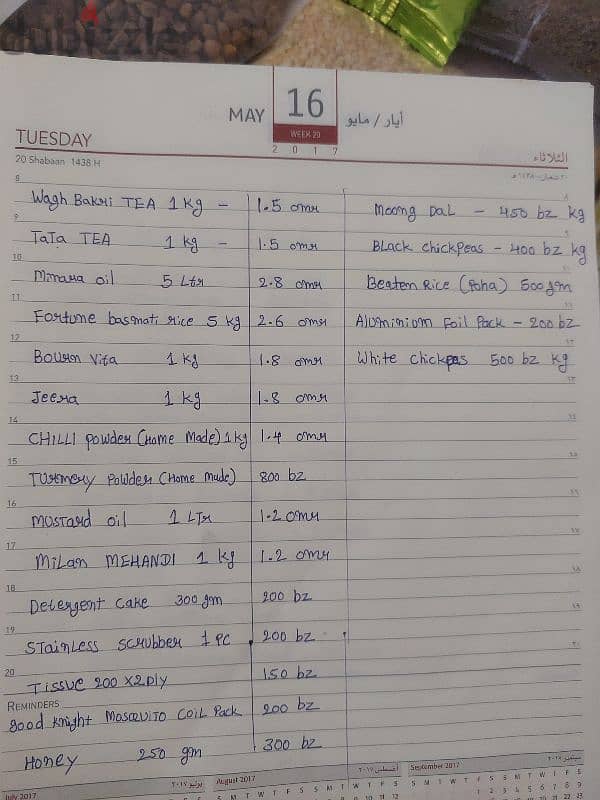 dubizzle
MAY 16 أيار / مايو
WEEK 20
2 0 1 7
TUESDAY الثلاثاء
20 Shabaan 1438 H ٢٠ شعبان - ١٤٣٨ هـ
8 Wagh Bakri TEA 1 Kg - 1.5 omr Moong Dal - 450 bz kg ٨
9 TaTa TEA 1 kg - 1.5 omr Black chickpeas - 400 bz kg ٩
10 Minara oil 5 Ltr 2.8 omr Beaten Rice (Poha) 500 gm ١٠
11 Fortune basmati rice 5 kg 2.6 omr Aluminiom Foil Pack - 200 bz ١١
12 Bourn Vita 1 kg 1.8 omr White chickpeas 500 bz kg ١٢
13 Jeera 1 kg 1.8 omr ١٣
14 CHILLI powder (Home Made) 1 kg 1.4 omr ١٤
15 Turmery Powder (Home Made) 800 bz ١٥
16 Mustard oil 1 LTr 1.2 omr ١٦
17 Milan MEHANDI 1 kg 1.2 omr ١٧
18 Detergent cake 300 gm 200 bz ١٨
19 STainLess scrubber 1 PC 200 bz ١٩
20 Tissue 200 x2ply 150 bz ٢٠
REMINDERS
good Knight Mosquito Coil Pack 200 bz
Honey 250 gm 300 bz
July 2017 يوليو ٢٠١٧ August 2017 أغسطس ٢٠١٧ September 2017 سبتمبر ٢٠١٧
S M T W T F S S M T W T F S